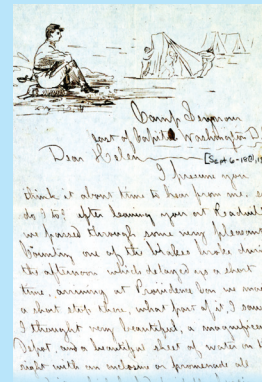 Camp Seymour
East of Capitol Washington D.
Dear Helen [Sept 6-1861
I presume you
think it about time to hear from me, so
do I to? After leaving you at
we passed through some very pleasant
Country one of the brakes broke during
the afternoon which delayed us a short
time, arriving at Providence Con we made
a short stop there, what part of it, I saw
I thought very beautiful, a magnificent
Depot, and a beautiful sheet of water on the
right with an enclosure or promenade all